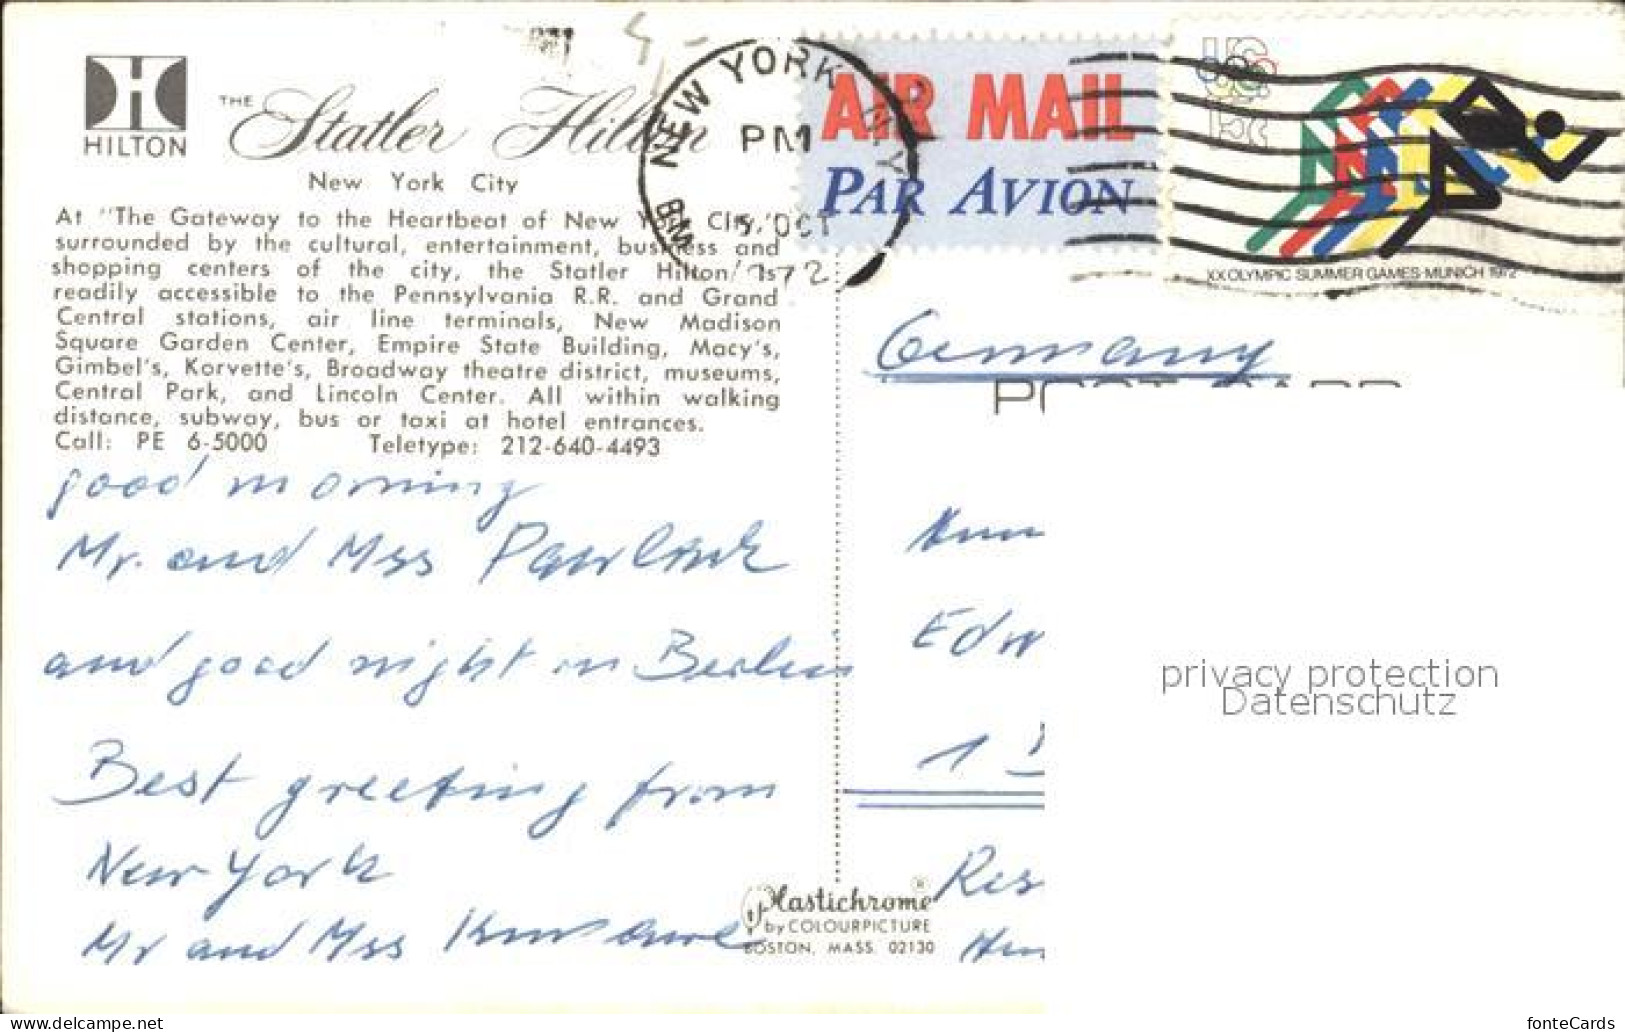 HILTON
THE Statler Hilton
New York City
At "The Gateway to the Heartbeat of New York City,"
surrounded by the cultural, entertainment, business and
shopping centers of the city, the Statler Hilton is
readily accessible to the Pennsylvania R.R. and Grand
Central stations, air line terminals, New Madison
Square Garden Center, Empire State Building, Macy's,
Gimbel's, Korvette's, Broadway theatre district, museums,
Central Park, and Lincoln Center. All within walking
distance, subway, bus or taxi at hotel entrances.
Call: PE 6-5000 Teletype: 212-640-4493
NEW YORK N.Y.
PM
5 OCT
1972
AIR MAIL
PAR AVION
US
15c
XX OLYMPIC SUMMER GAMES MUNICH 1972
Germany
good morning
Mr. and Mss
and good night in Berlin
Best greeting from
New York
Mr and Mss
Edw
1
Res
Plastichrome ®
by COLOURPICTURE
BOSTON, MASS. 02130
privacy protection
Datenschutz
https://www.delcampe.net
fonteCards